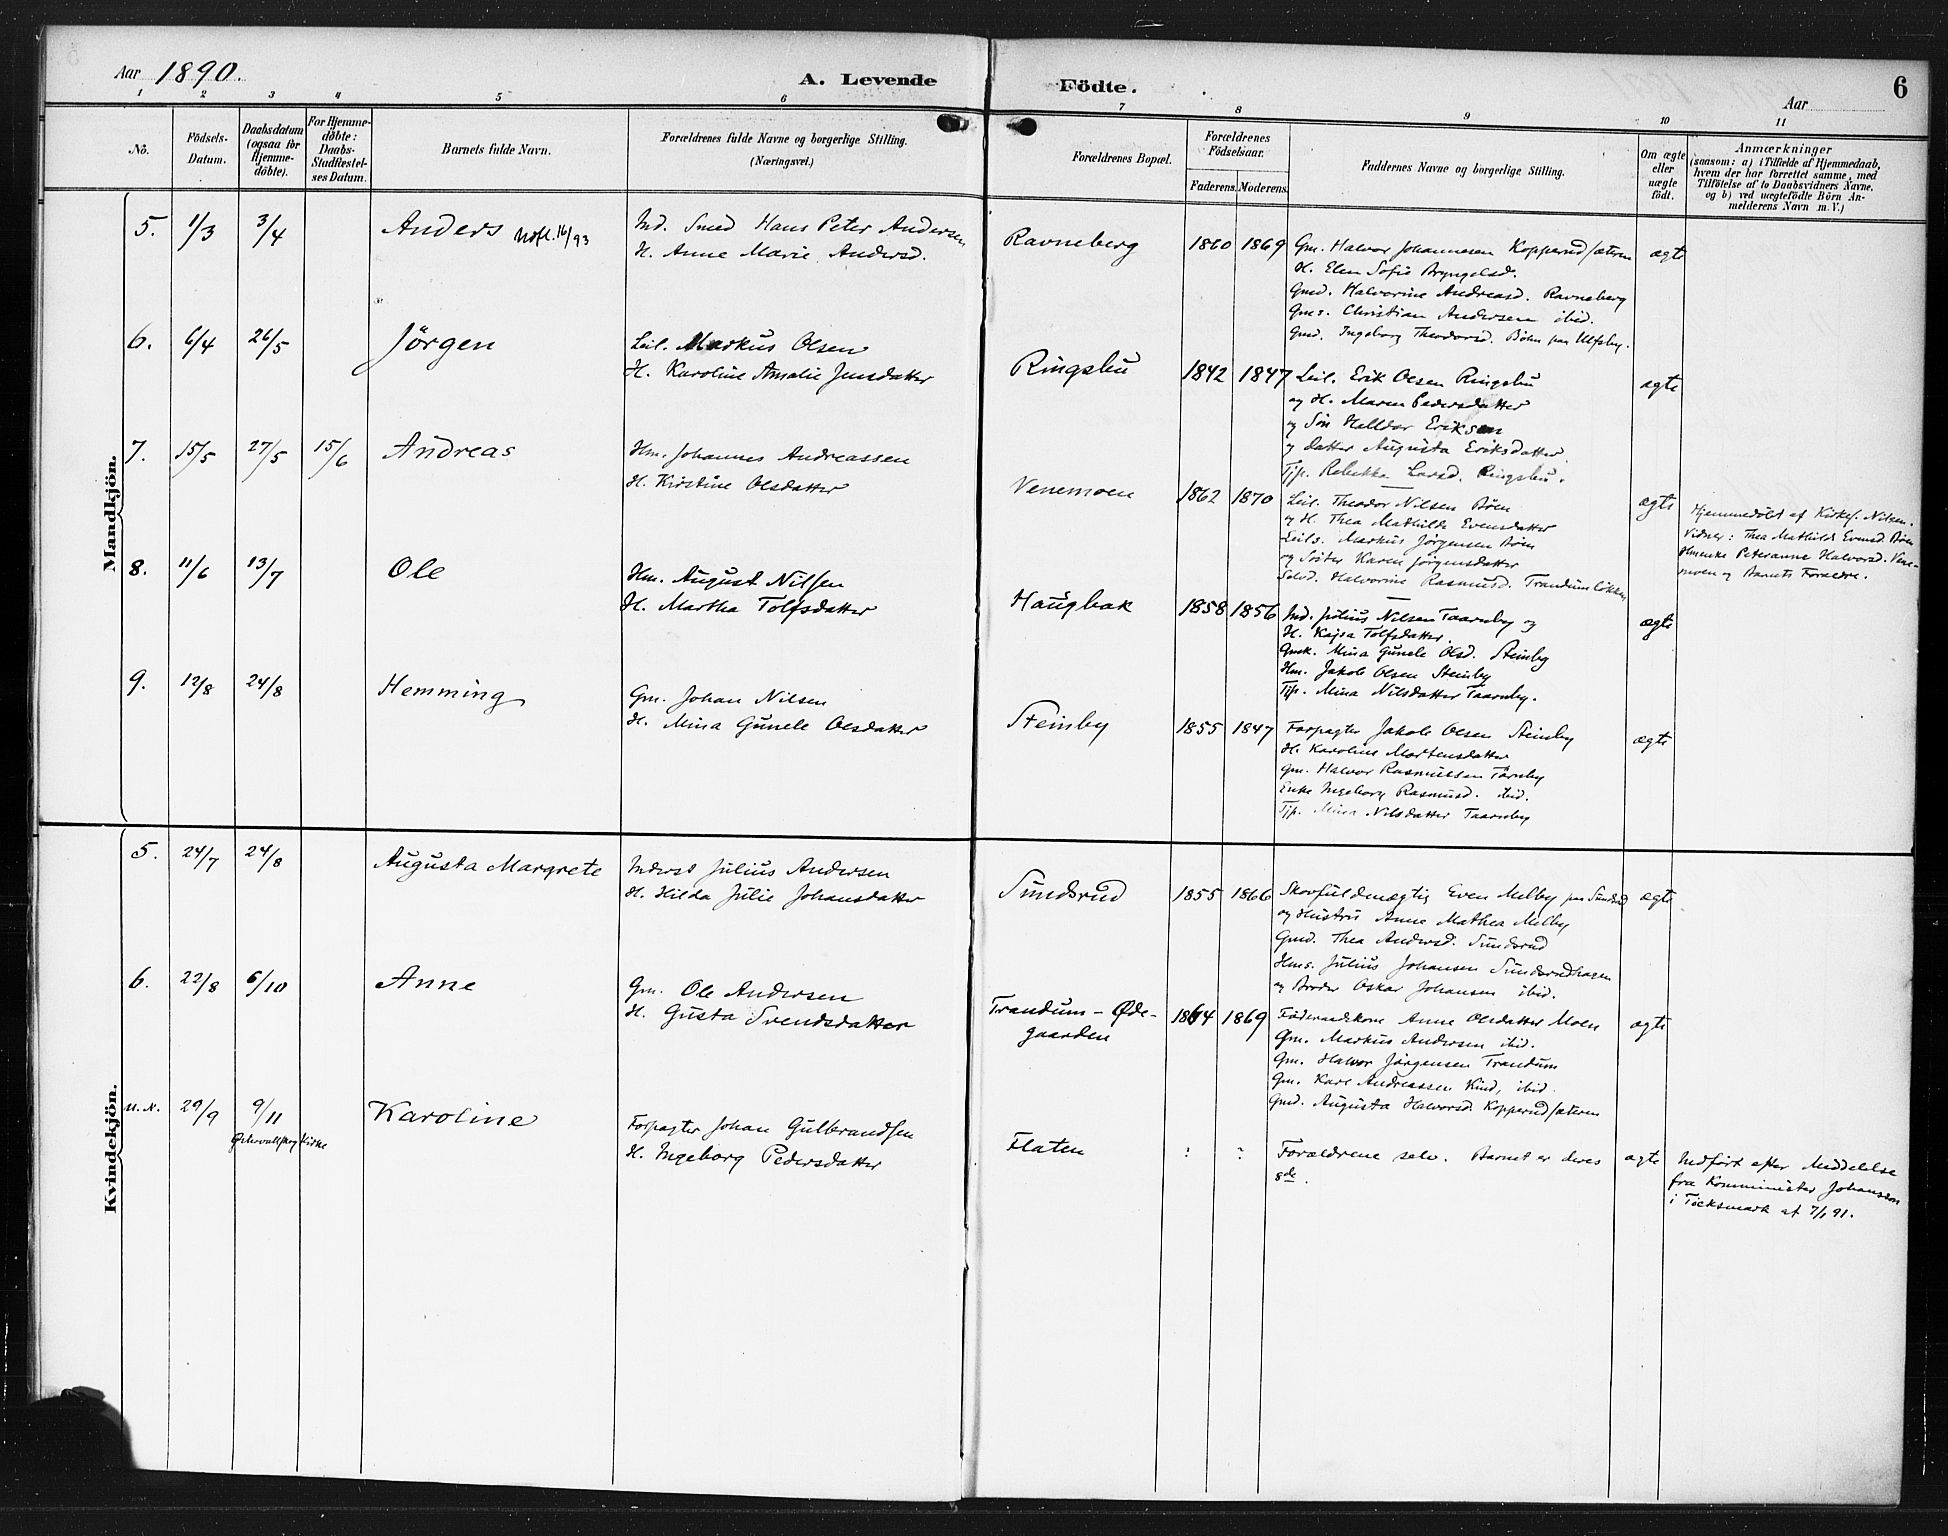 Aar 1890.
A. Levende Födte.
Aar
6
1 2 3 4 5 6 7 8 9 10 11
No.
Födsels-Datum.
Daabsdatum (ogsaa for Hjemme-döbte).
For Hjemme-döbte: Daabs-Stadfæstel-ses Datum.
Barnets fulde Navn.
Forældrenes fulde Navne og borgerlige Stilling. (Næringsvei.)
Forældrenes Bopæl.
Forældrenes Födselsaar.
Faderens. Moderens.
Faddernes Navne og borgerlige Stilling.
Om ægte eller uægte födt.
Anmærkninger
(saasom: a) i Tilfælde af Hjemmedaab,
hvem der har forrettet samme, med
Tilföielse af to Daabsvidners Navne,
og b) ved uægtefödte Börn An-
melderens Navn m. V.)
Mandkjön.
5. 1/3 3/4 Anders 16/93
Ind. Smed Hans Peter Andersen
H. Anne Marie Andersd.
Ravneberg 1860 1869
Gm. Halvor Johannesen Kopperudsæteren
H. Elen Sofie Bryngelsd.
Gmd. Halvorine Andreasd. Ravneberg
Gms. Christian Andersen ibid.
Gmd. Ingeborg Theodorsd. Böhn paa Ulfsby.
ægte
6. 6/4 26/5 Jörgen
Leil. Markus Olsen
H. Karoline Amalie Jensdatter
Ringsbu 1842 1847
Leil. Erik Olsen Ringsbu
og H. Maren Pedersdatter
og Sön Halldor Eriksen
og datter Augusta Eriksdatter
Tjp. Rebekka Larsd. Ringsbu.
ægte
7. 15/5 27/5 15/6 Andreas
Hm. Johannes Andreassen
H. Kirstine Olsdatter
Venemoen 1862 1870
Leil. Theodor Nilsen Böen
og H. Thea Mathilde Evensdatter
Leils. Markus Jörgensen Böen
og Söster Karen Jörgensdatter
Selvd. Halvorine Rasmusd. Trandumlökken
ægte
Hjemmedöbt af Kirkes. Nilsen.
Vidner: Thea Mathilde Evensd. Böen
Hmenke Peteranne Halvorsd. Vene-
moen og Barnets Forældre.
8. 11/6 13/7 Ole
Hm. August Nilsen
H. Martha Tolfsdatter
Haugbak 1858 1856
Ind. Julius Nilsen Taarnby og
H. Kajsa Tolfsdatter
Gmk. Mina Gunele Olsd. Steinby
Hm. Jakob Olsen Steinby
Tjp. Mina Nilsdatter Taarnby.
ægte
9. 12/8 24/8 Hemming
Gm. Johan Nilsen
H. Mina Gunele Olsdatter
Steinby 1855 1847
Forpagter Jakob Olsen Steinby
H. Karoline Mortensdatter
Gm. Halvor Rasmussen Tårnby
Enke Ingeborg Rasmusd. ibid.
Tjp. Mina Nilsdatter Taarnby
ægte
Kvindekjön.
5. 24/7 24/8 Augusta Margrete
Inderst Julius Andersen
H. Hilda Julie Johansdatter
Sundsrud 1855 1866
Skovfuldmægtig Even Melby paa Sundsrud
og Hustru Anne Mathea Melby
Gmd. Thea Andersd. Sundsrud
Hms. Julius Johansen Sundsrudhagen
og Broder Oskar Johansen ibid.
ægte
6. 22/8 6/10 Anne
Gm. Ole Andersen
H. Gusta Svendsdatter
Trandum-Øde-
gaarden 1864 1869
Föderaadskone Anne Olsdatter Moen
Gm. Markus Andersen ibid.
Gm. Halvor Jörgensen Trandum
Gm. Karl Andreassen Kind, ibid.
Gmd. Augusta Halvorsd. Kopperudsæteren
ægte
u.N. 29/9 9/11 Karoline
Östervallskog Kirke
Forpagter Johan Gulbrandsen
H. Ingeborg Pedersdatter
Flaten ? ?
Forældrene selv. Barnet er deres
8de.
ægte
Indfört efter Meddelelse
fra Komminister Johansson
i Töcksmark af 7/1 91.